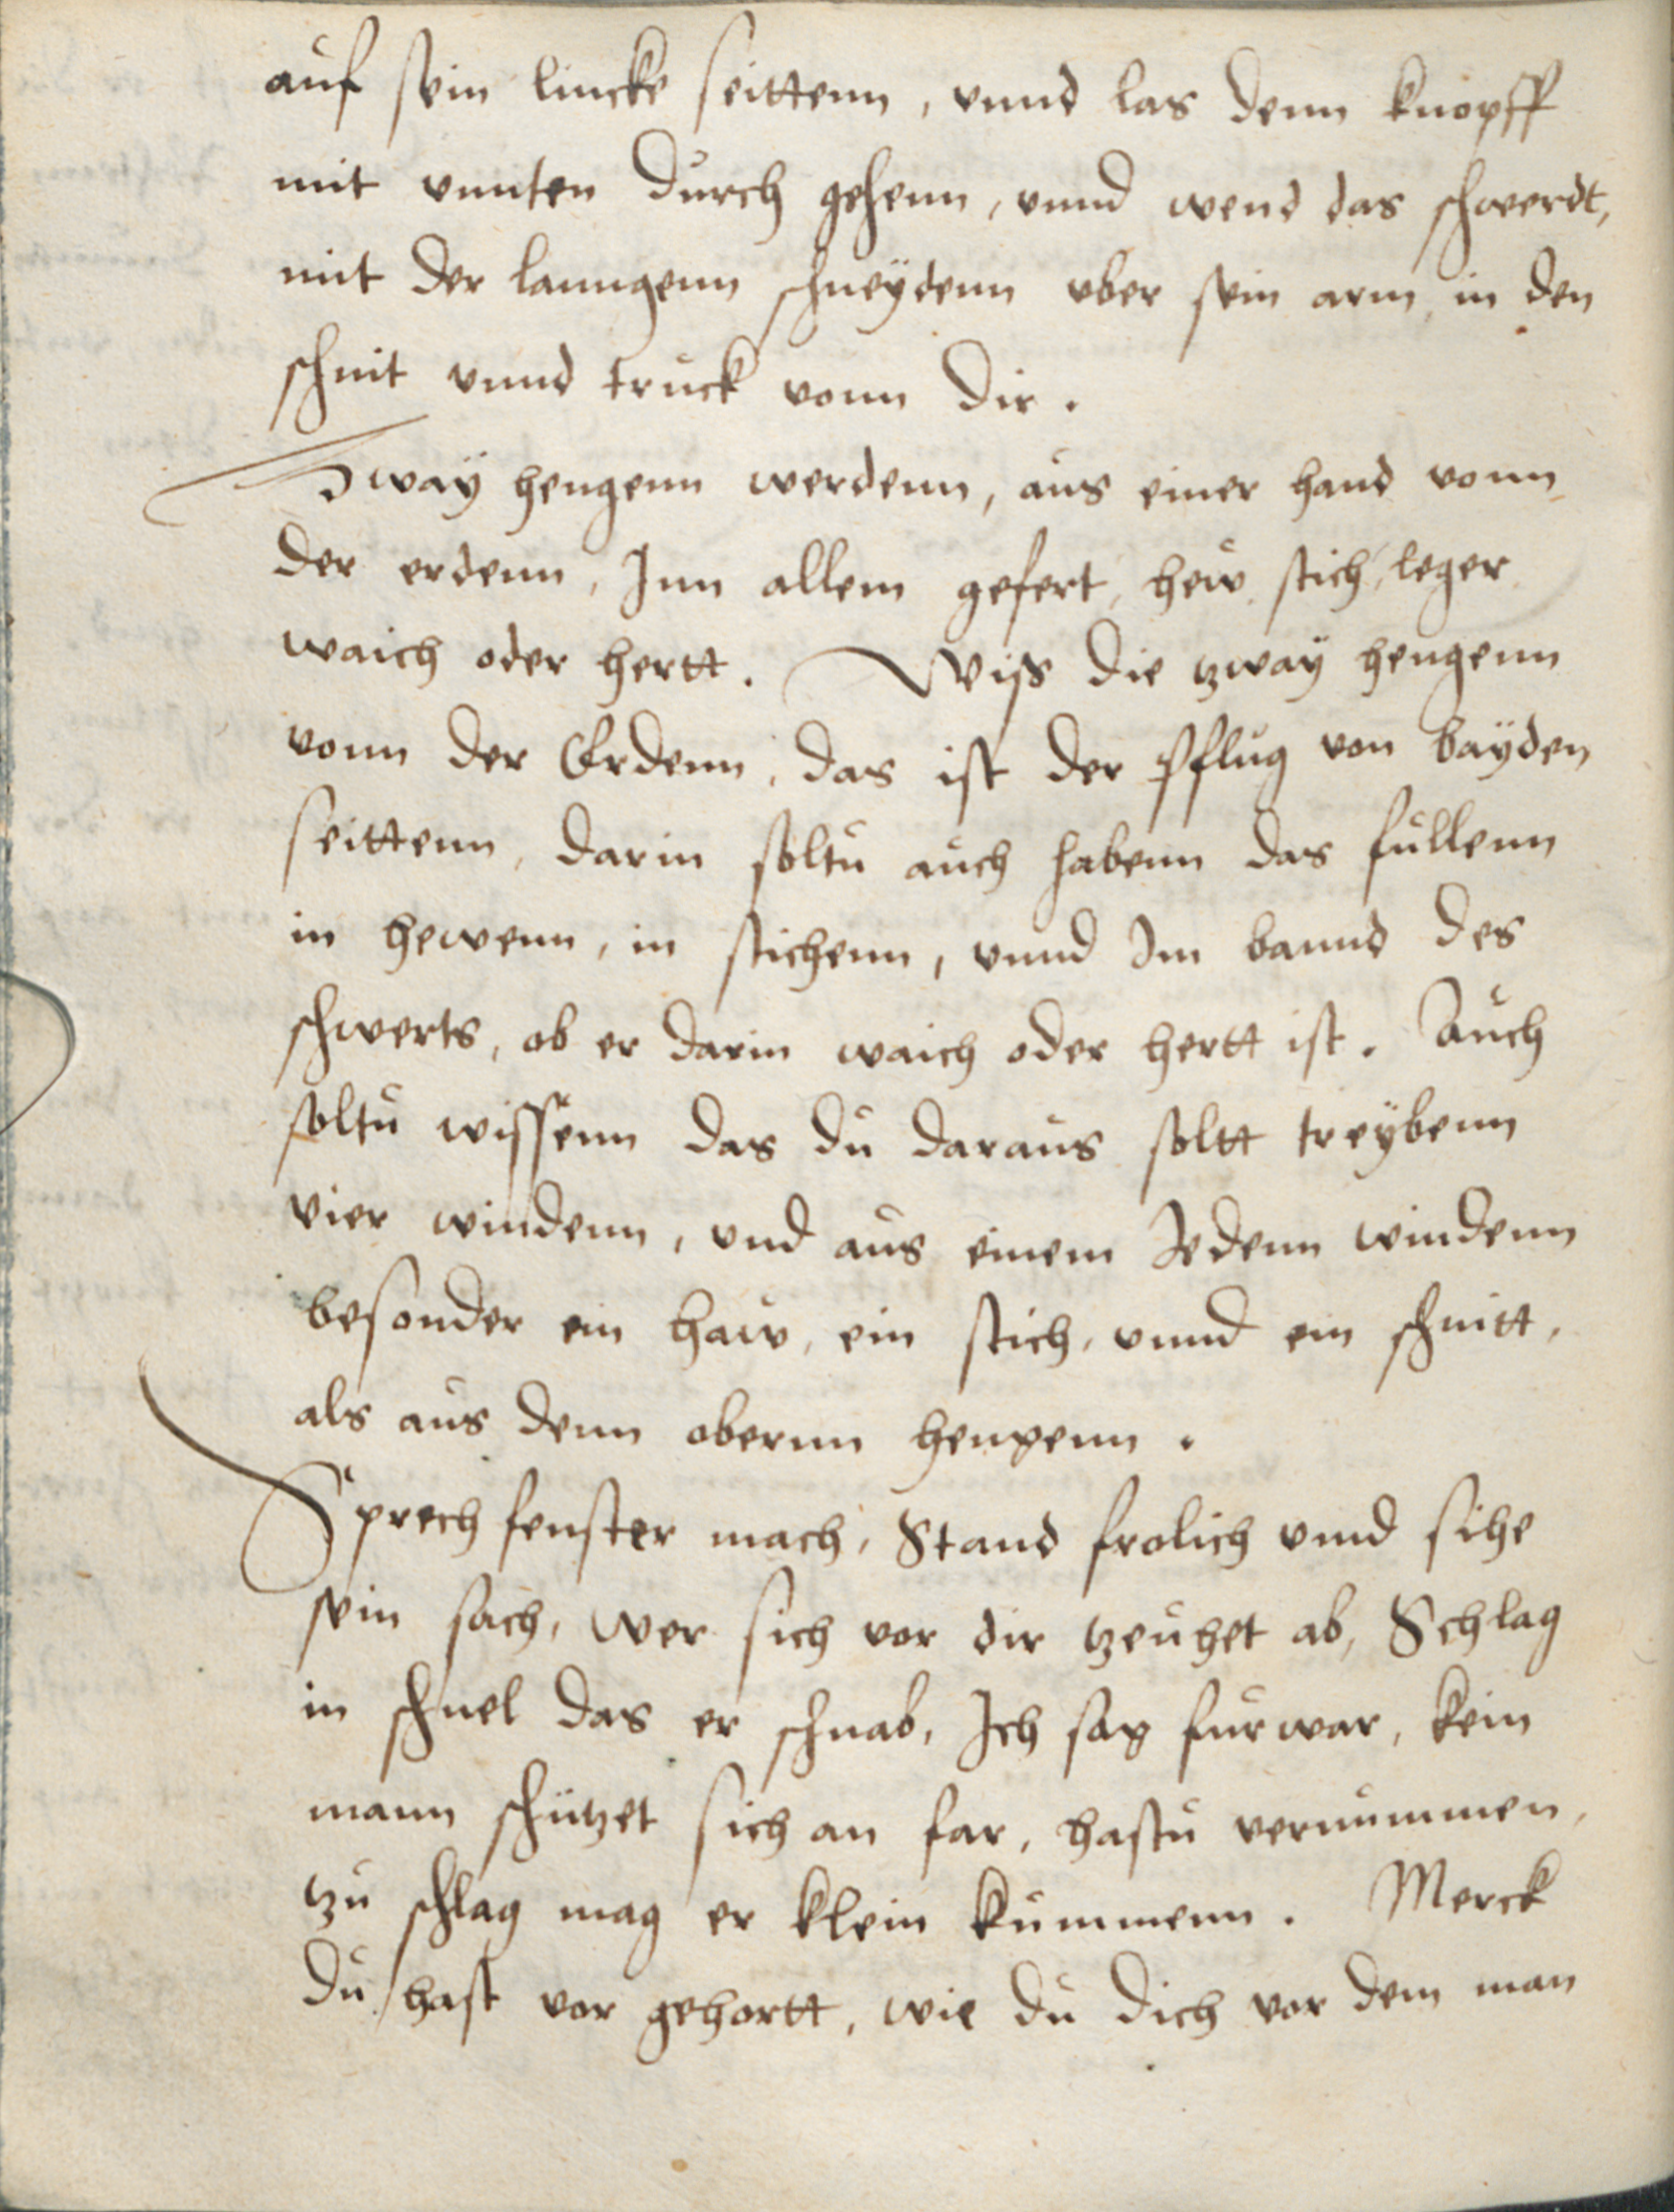 auf sein lincke seittenn, vnnd las denn knopff
mit vnnten durch gehenn, vnnd wend das schwerdt,
mit der lanngenn schneÿdenn vber sein arm, in den
schnit vnnd truck vonn dir.
Zwaÿ hengenn werdenn, aus einer hand vonn
der erdenn, Inn allem gefert, hew, stich, leger
waich oder hertt. Wiss die tzwaÿ hengenn
vonn der Erdenn, das ist der Pflug von baÿden
seittenn, darin soltu auch habenn das fullenn
in hewenn, in stichenn, vnnd Im bannd des
schwerts, ob er darin waich oder hertt ist. Auch
soltu wissenn das du daraus soltt treÿbenn
vier windenn, vnd aus einem Iedenn windenn
besonder ein haw, ein stich, vnnd ein schnitt,
als aus denn obernn hengenn.
Sprech fenster mach, Stand frolich vnnd sihe
sein sach, wer sich vor dir tzeuhet ab, Schlag
in schnel das er schnab, Ich sag furwar, kein
mann schutzet sich an far, hastu vernummen,
tzu schlag mag er klein kummenn. Merck
du hast vor gehortt, wie du dich vor dem man